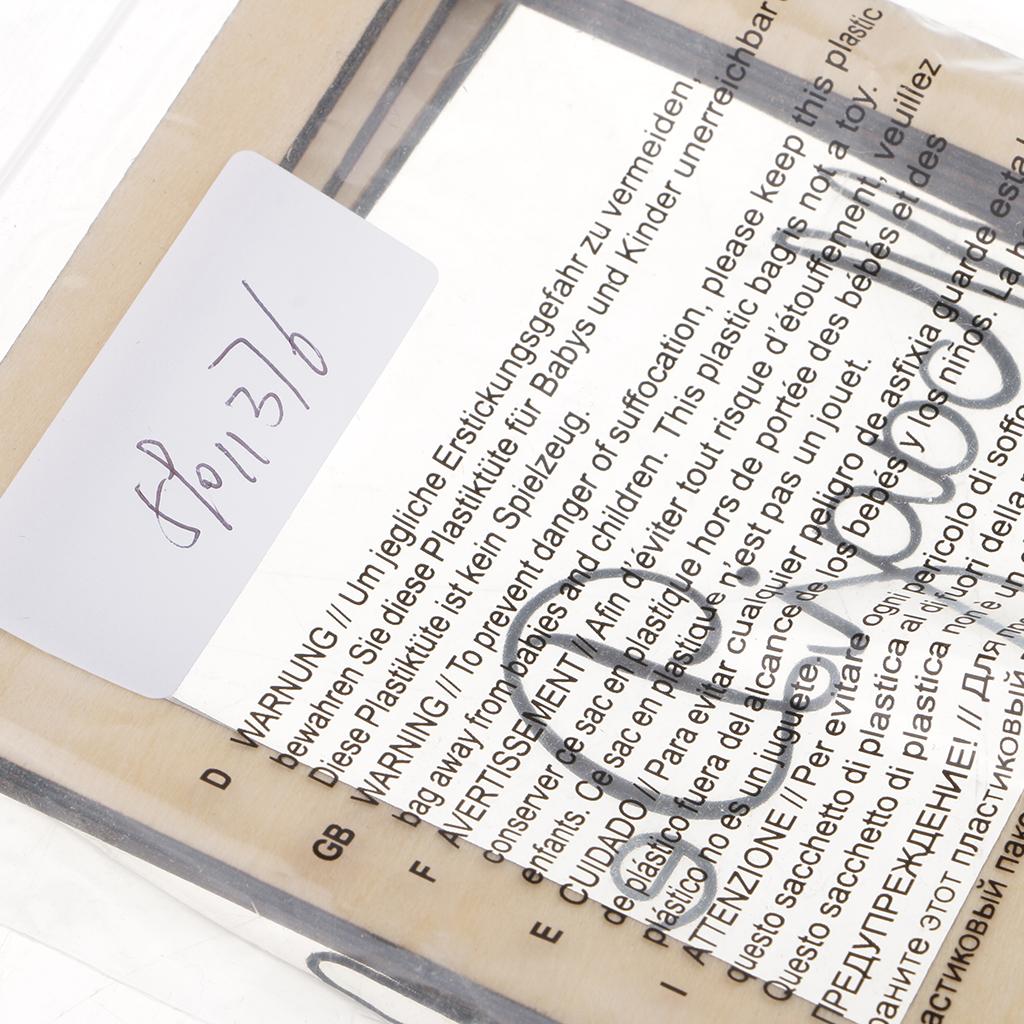 5P011376
D WARNUNG // Um jegliche Erstickungsgefahr zu vermeiden,
bewahren Sie diese Plastiktüte für Babys und Kinder unerreichbar
Diese Plastiktüte ist kein Spielzeug.
GB WARNING // To prevent danger of suffocation, please keep this plastic
bag away from babies and children. This plastic bag is not a toy.
F AVERTISSEMENT // Afin d'éviter tout risque d'étouffement, veuillez
conserver ce sac en plastique hors de portée des bébés et des
enfants. Ce sac en plastique n'est pas un jouet.
E CUIDADO // Para evitar cualquier peligro de asfixia guarde esta
de plástico fuera del alcance de los bebés y los niños. La
plástico no es un juguete.
I ATTENZIONE // Per evitare ogni pericolo di
questo sacchetto di plastica al di fuori della
Questo sacchetto di plastica non è un
ПРЕДУПРЕЖДЕНИЕ! // Для
этот пластиковый